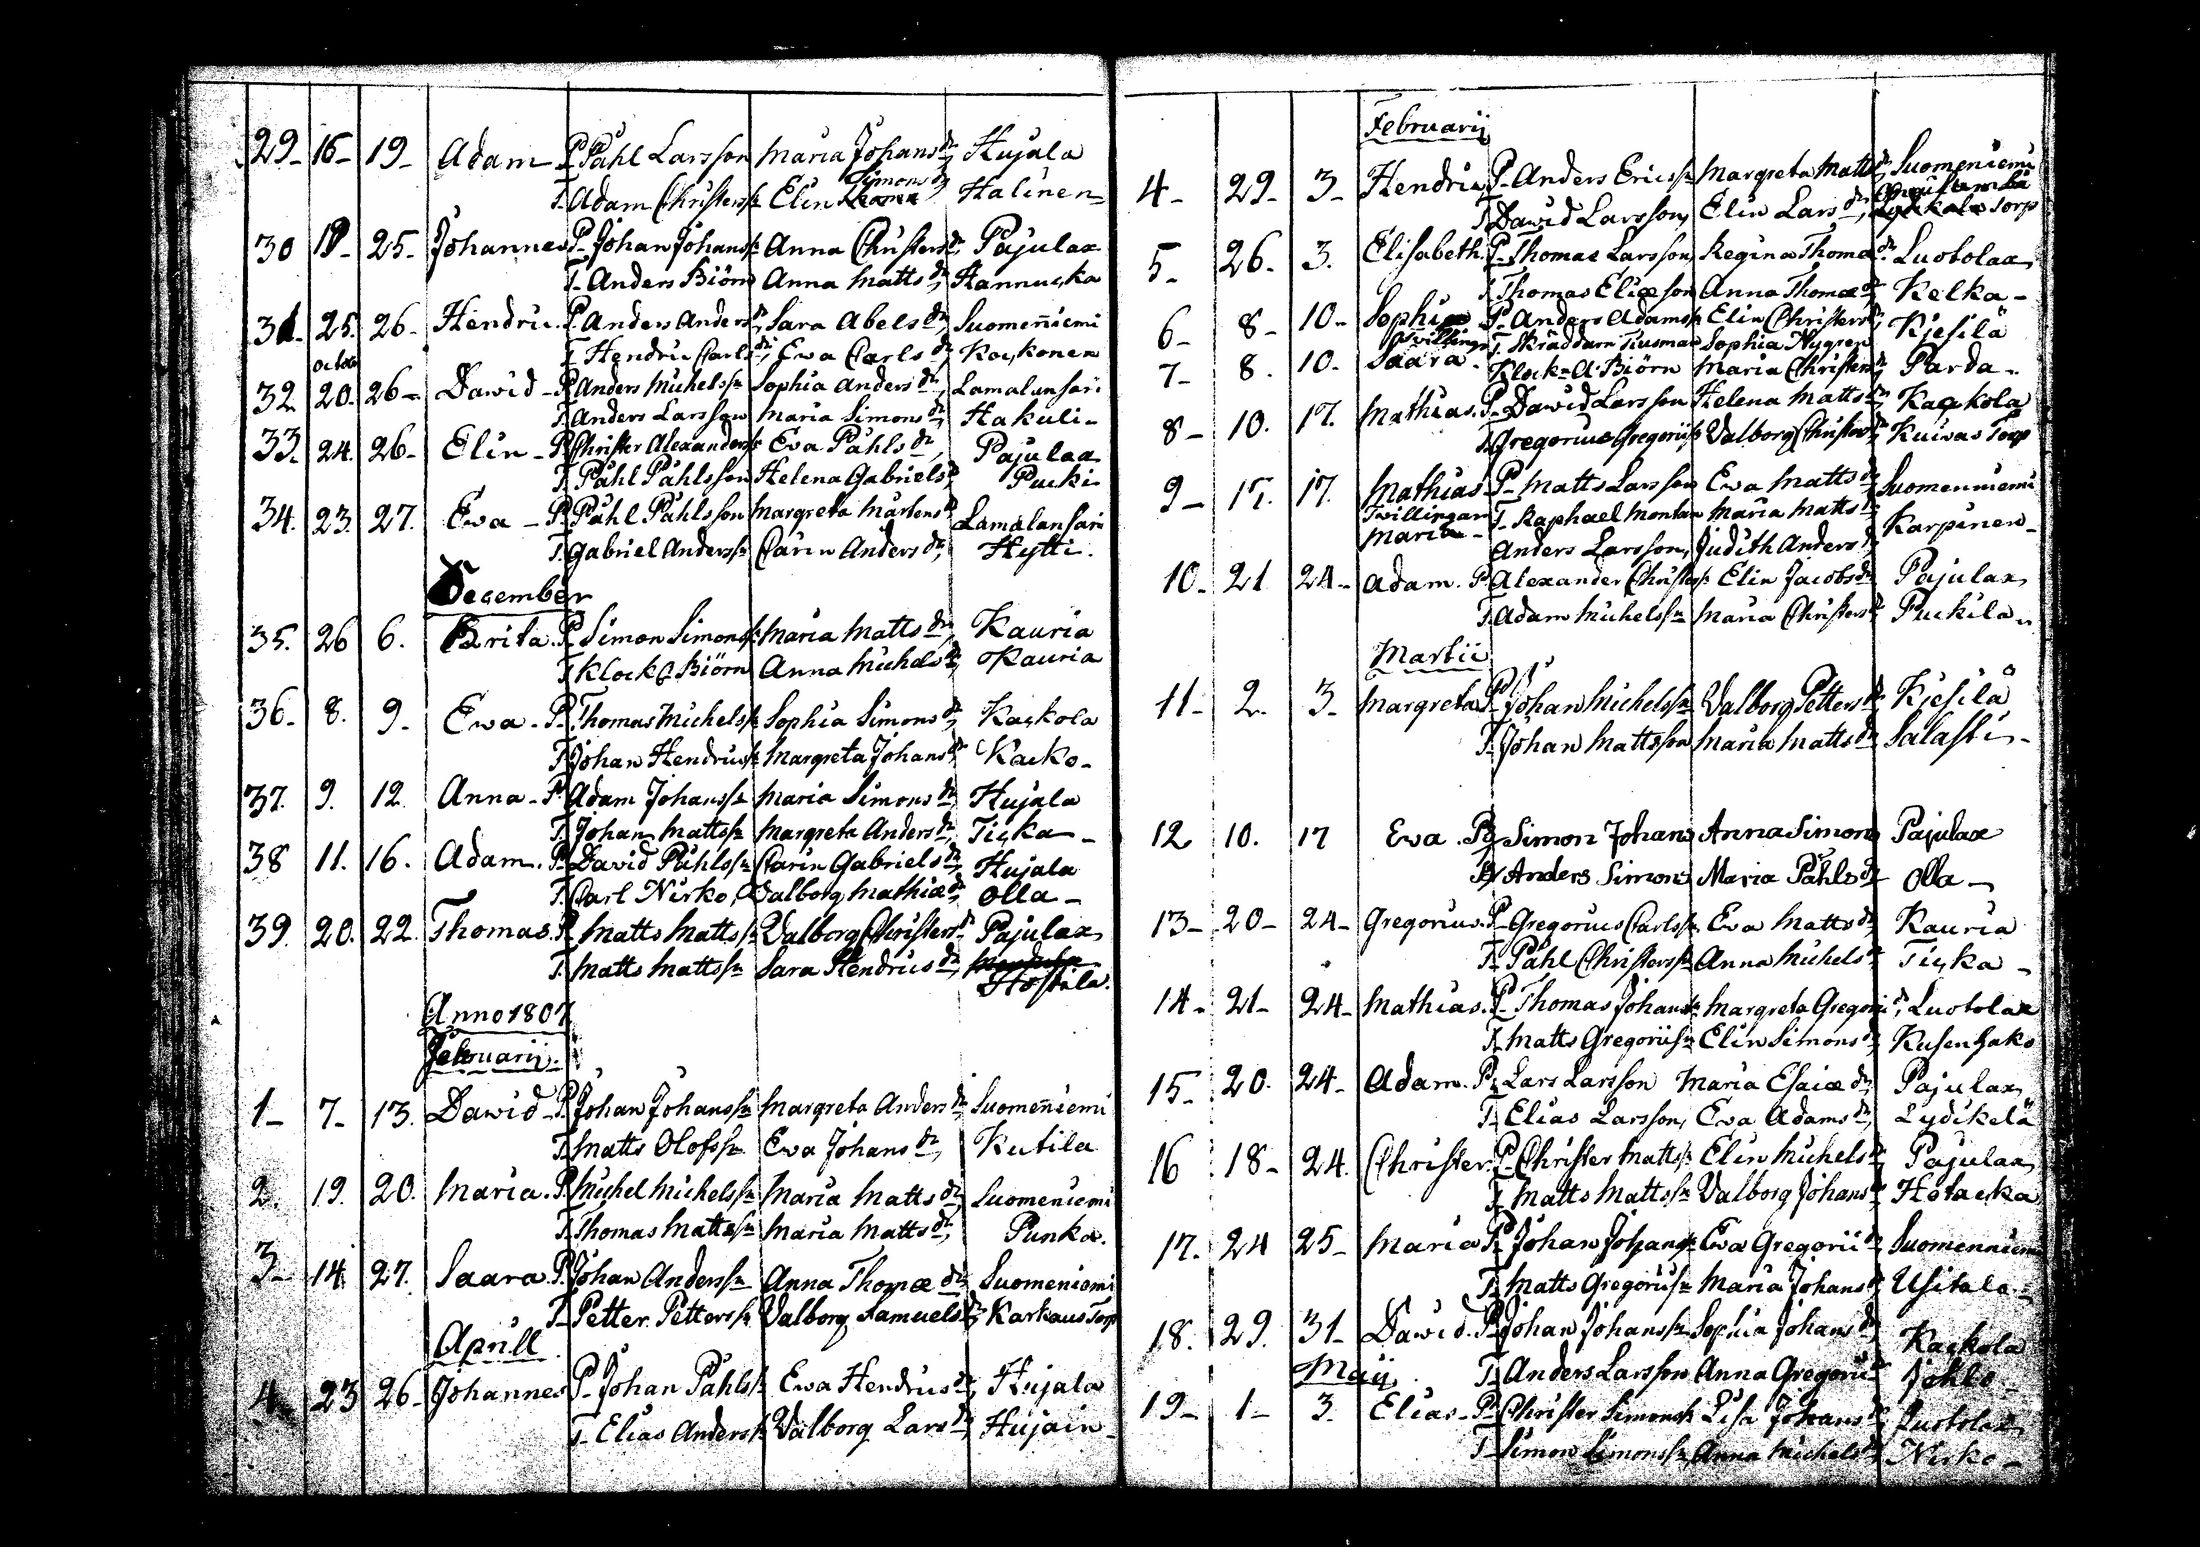 29- 16- 19- Adam- P. Påhl Larsson Maria Johans dr, Hujala
T. Adam Christerss: Elin Simons dr, Halinen-
30 18- 25- Johannes P- Johan Johanss: Anna Christers dr, Pajulax
T- Anders Biörn Anna Matts dr, Hannucka
31. 25. 26- Hendric. P. Anders Anders Sara Abels dr, Suomeñiemi
T. Hendric Carls Ewa Carls dr, Kockonen
Octob
32 20- 26- Dawid- P. Anders Michelssn Sophia Anders dr, Lamalansari
T. Anders Larsson Maria Simons dr, Hakuli-
33. 24. 26- Elin- P. Christer Alexanders Eva Påhls dr, Pajulax
T. Påhl Påhlsson Helena Gabriels Pucki
34. 23 27. Ewa- P. Påhl Påhlsson Margreta Mårtens Lamalansari
T. Gabriel Anderssn Carin Anders dr, Hytti.
December
35. 26 6. Brita. P. Simon Simonss Maria Matts dr, Kauria
T. Klock. Biörn Anna Michels dr, Kauria
36- 8. 9- Ewa- P. Thomas Michelss Sophia Simons dr, Kackola
T. Johan Hendricss Margreta Johans dr Kacko-
37. 9. 12 Anna- P. Adam Johanssn Maria Simons dr, Hujala
T. Johan Mattssn Margreta Anders dr, Ticka-
38 11. 16. Adam. P. David Påhlssn Carin Gabriels dr, Hujala
T. Carl Nirko, Valborg Mathiæ dr, Olla-
39. 20. 22. Thomas. P. Matts Mattssn Valborg Christers dr Pajulax
T. Matts Mattssn Sara Hendrics dr,
Hostila.
Anno 1807
Februarij.
1- 7- 13. Dawid- P. Johan Johanssn Margreta Anders dr, Suomeñiemi
T. Matts Olofssn Ewa Johans dr, Kutila
2. 19. 20. Maria. P. Michel Michelssn Maria Matts dr, Suomeniemi
T. Thomas Mattssn Maria Matts dr, Punka.
3- 14. 27. Saara. P. Johan Anderssn Anna Thomæ dr, Suomeniemi
T- Petter Petterssn Valborg Samuels dr, Karkaus Torp
Aprill
4 23 26- Johannes P- Johan Påhlss Ewa Hendrics dr, Hujala
T- Elias Anderss Valborg Lars dr, Hujain-
Februarij
4- 29- 3- Hendric P- Anders Ericssn Margreta Matts dr, Suomeniemi
T. Dawid Larsson, Elin Lars dr, Torp
5- 26. 3. Elisabeth. P- Thomas Larsson Regina Thomæ dr. Luotolax
T. Thomas Eliæson Anna Thomæ dr, Kelka-
6- 8- 10- Sophia P- Anders Adamss Elin Christers Kjesilä
Tvillingar T. Skräddarn Tiusman Sophia Nygren
7- 8. 10- Saara. Klock- A. Biörn Maria Christers dr Parda-
8- 10. 17. Mathias. P- Dawid Larsson Helena Matts dr, Kackola
T. Gregorius Gregorii Valborg Christers dr, Kuivas Torp
9- 15. 17. Mathias P- Matts Larsson Ewa Matts dr, Suomenniemi
Twillingar T- Raphael Montan Maria Matts dr, Karpinen-
Maria- Anders Larsson, Judith Anders dr
10- 21 24- Adam. P. Alexander Christerss Elin Jacobs dr Pajulax
T. Adam Michelssn Maria Christers dr Puckila
Martii
11- 2. 3- Margreta P- Johan Michelssn Valborg Petters dr, Kjesilä
T. Johan Mattsson Maria Matts dr Salasti-
12 10. 17 Ewa. P Simon Johans Anna Simons Pajulax
T Anders Simons Maria Påhls dr Olla-
13- 20- 24- Gregorius. P- Gregorius Carlssn Eva Matts dr Kauria
T- Påhl Christerss Anna Michels dr Ticka-
14- 21- 24- Mathias. P- Thomas Johans Margreta Gregorii dr, Luotolax
T. Matts Gregorii Elin Simons dr, Kusenhako
15- 20. 24- Adam. P. Lars Larsson Maria Esaiæ dr, Pajulax
T- Elias Larsson, Eva Adams dr, Lydikelä
16 18- 24. Christer. P- Christer Mattss Elin Michels dr, Pajulax
T. Matts Mattssn Valborg Johans dr, Hotacka
17. 24 25- Maria P. Johan Johans Eva Gregorii dr Suomenniemi
T. Matts Gregorii Maria Johans dr, Usitalo-
18. 29. 31- Dawid. P. Johan Johanssn Sophia Johans dr, Kackola
T. Anders Larsson Anna Gregorii Johko-
Maij
19- 1- 3. Elias- P. Christer Simons Lisa Johans dr, Luotolax
T- Simon Simonssn Anna Michels dr Nirko-